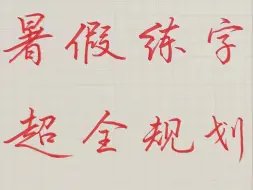 暑假练字
超全规划